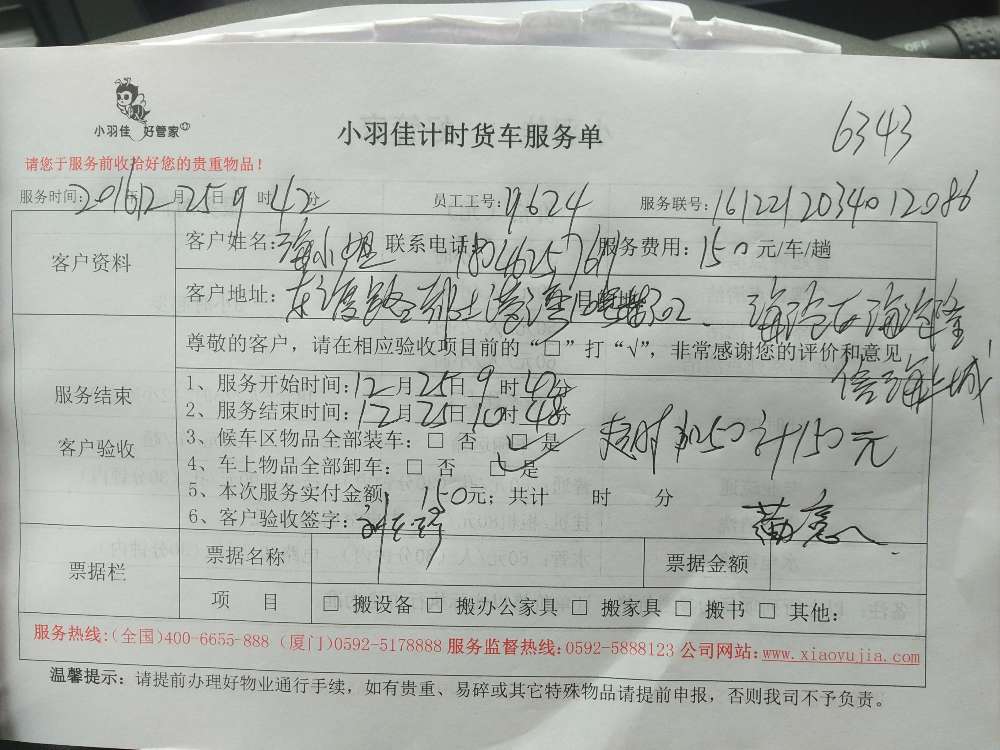 小羽佳 好管家
小羽佳计时货车服务单
6343
请您于服务前收拾好您的贵重物品!
服务时间: 2016年12月25日9时42分 员工工号: 19624 服务联号: 161221203401 2086
客户资料
客户姓名: 小姐 联系电话: 18046257611 服务费用: 150元/车/趟
客户地址: 东渡路 302
海上城
服务结束
客户验收
尊敬的客户，请在相应验收项目前的“□”打“√”，非常感谢您的评价和意见
1、服务开始时间: 12月25日9时42分
2、服务结束时间: 12月25日10时48分
3、候车区物品全部装车: □ 否 □ 是 超时加50计150元
4、车上物品全部卸车: □ 否 □ 是
5、本次服务实付金额: 150元; 共计 时 分
6、客户验收签字:
票据栏
票据名称 票据金额
项 目 □ 搬设备 □ 搬办公家具 □ 搬家具 □ 搬书 □ 其他:
服务热线:(全国)400-6655-888 (厦门)0592-5178888 服务监督热线:0592-5888123 公司网站:www.xiaoyujia.com
温馨提示: 请提前办理好物业通行手续，如有贵重、易碎或其它特殊物品请提前申报，否则我司不予负责。
OFF